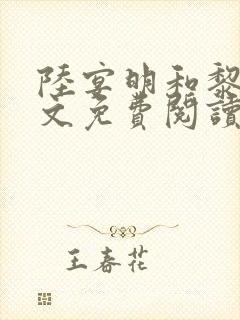 陸宴明和黎
文免費閱讀
王春花